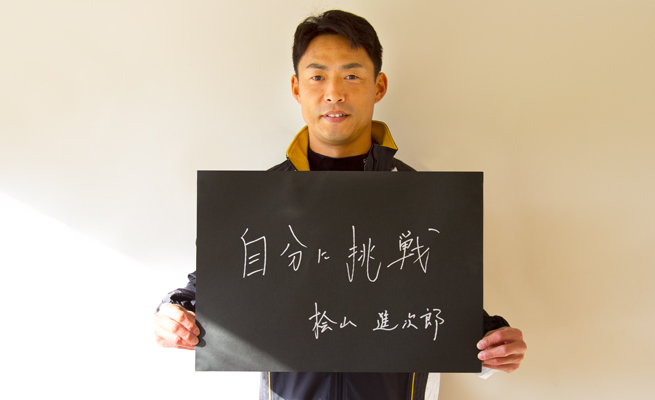 自分に挑戦
桧山 進次郎